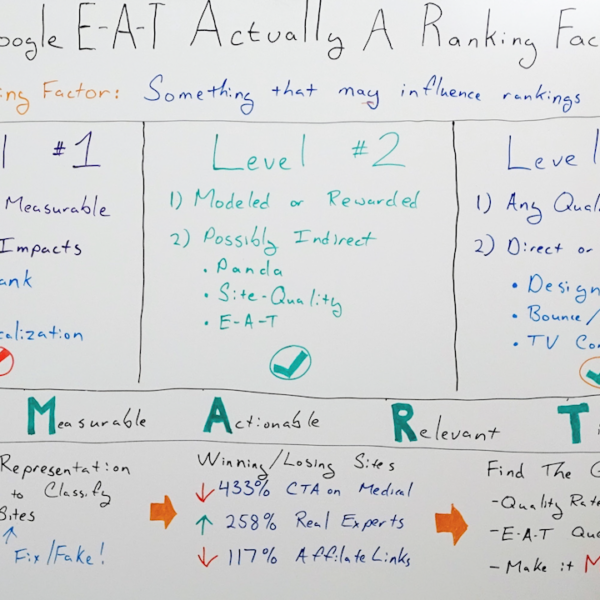 oogle E-A-T Actually A Ranking Fac
ng Factor: Something that may influence rankings
#1
Measurable
Impacts
ank
calization
Level #2
1) Modeled or Rewarded
2) Possibly Indirect
• Panda
• Site-Quality
• E-A-T
Level
1) Any Qual
2) Direct or
• Design
• Bounce/
• TV Con
Measurable Actionable Relevant Ti
Representation
to Classify
Sites
Fix/Fake!
Winning/Losing Sites
↓ 433% CTA on Medical
↑ 258% Real Experts
↓ 117% Affiliate Links
Find The G
- Quality Rate
- E-A-T Que
- Make it M